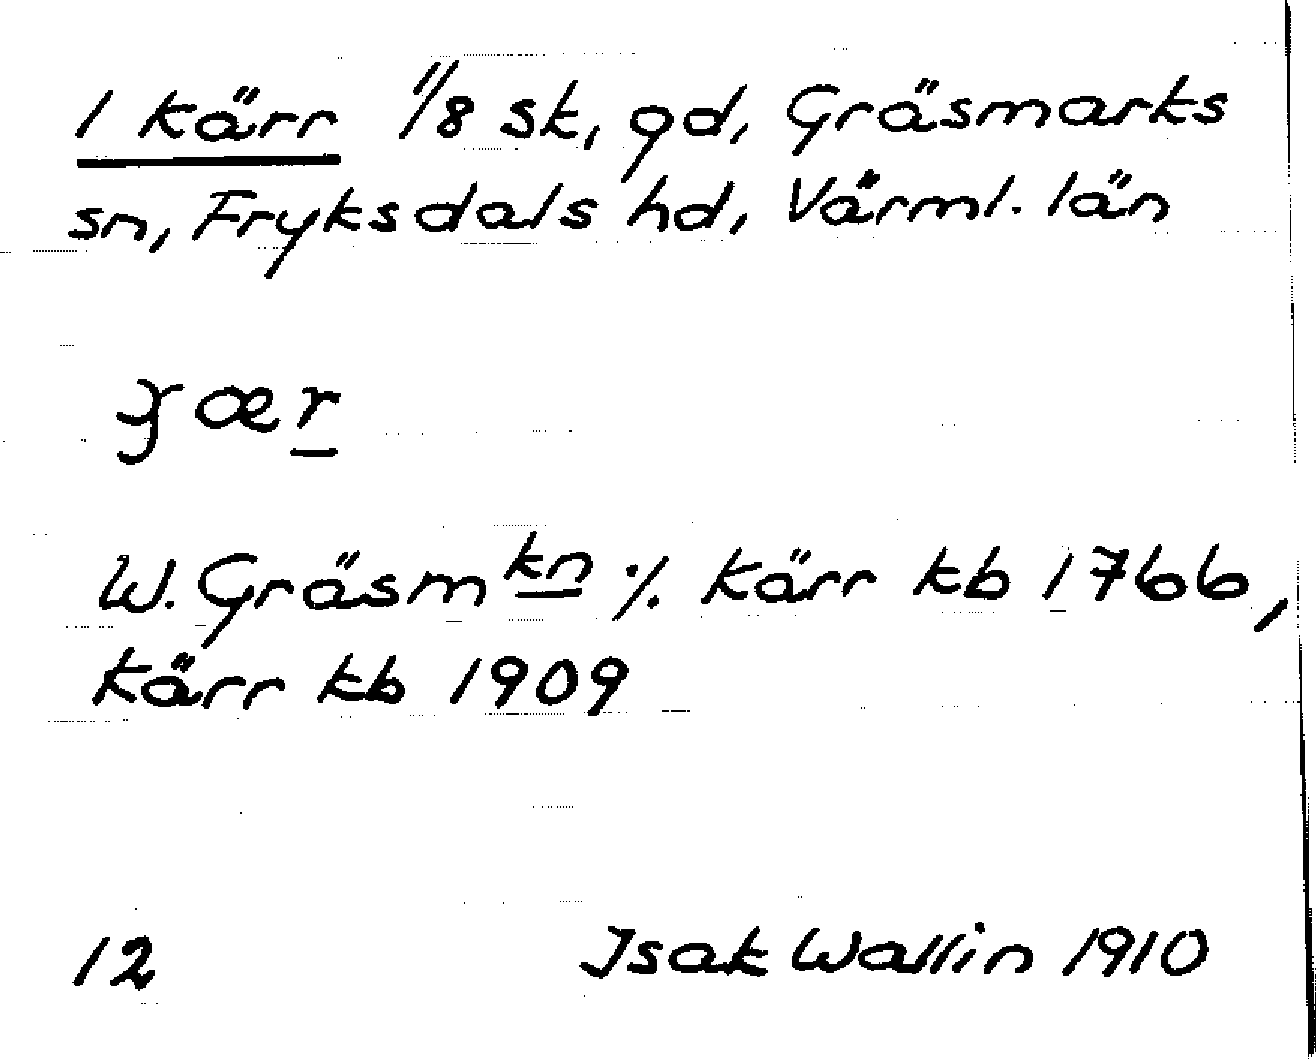 1 Kärr 11/8 sk, gd, Gräsmarks
sn, Fryksdals hd, Värml. län
W. Gräsm kn ·/. Kärr kb 1766,
Kärr kb 1909
12 Isak Wallin 1910